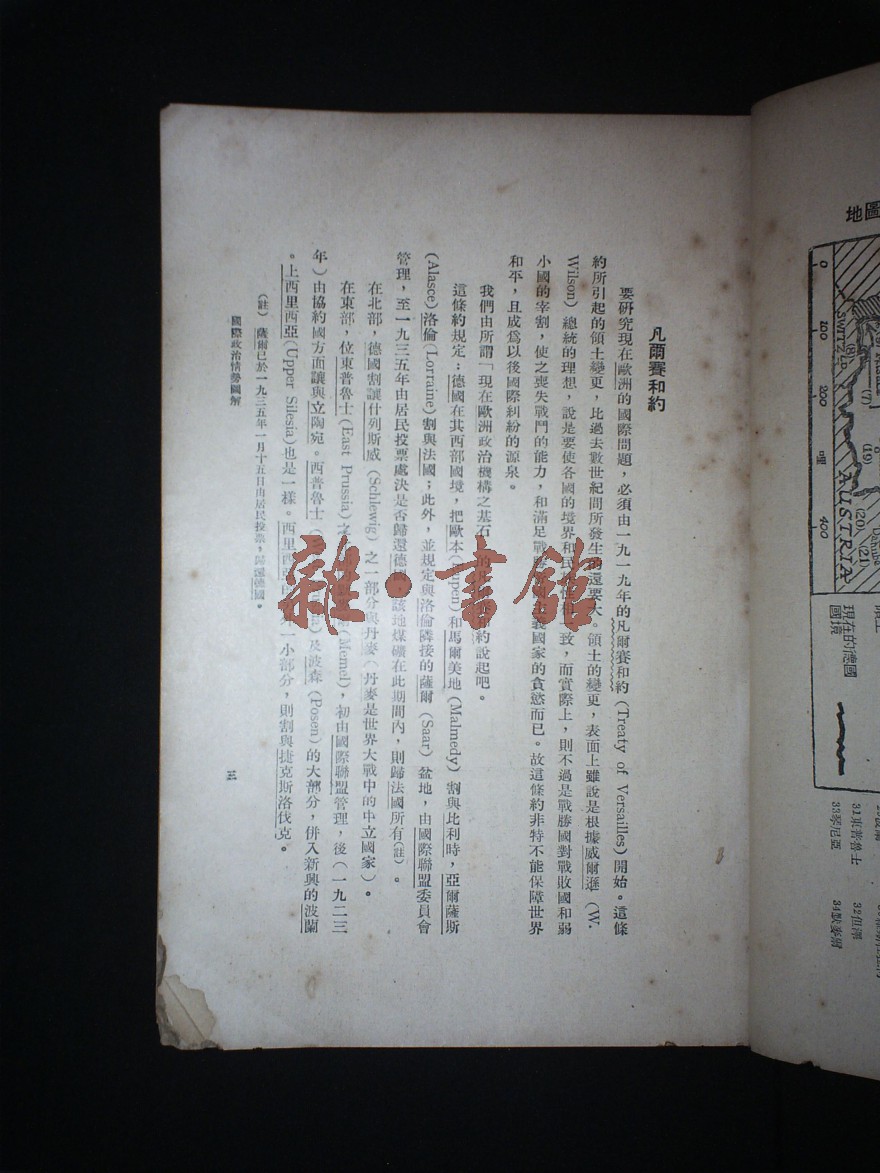 凡爾賽和約
要研究現在歐洲的國際問題,必須由一九一九年的凡爾賽和約(Treaty of Versailles)開始。這條
約所引起的領土變更,比過去數世紀間所發生的還要大。領土的變更,表面上雖說是根據威爾遜(W.
Wilson)總統的理想,說是要使各國的境界和民族性相一致,而實際上,則不過是戰勝國對戰敗國和弱
小國的宰割,使之喪失戰鬥的能力,和滿足戰勝義國家的貪慾而已。故這條約非特不能保障世界
和平,且成爲以後國際糾紛的源泉。
我們由所謂「現在歐洲政治機構之基石」的凡爾賽和約說起吧。
這條約規定:德國在其西部國境,把歐本(Eupen)和馬爾美地(Malmedy)割與比利時,亞爾薩斯
(Alasce)洛倫(Lorraine)割與法國;此外,並規定與洛倫隣接的薩爾(Saar)盆地,由國際聯盟委員會
管理,至一九三五年由居民投票處決是否歸還德國,該地煤礦在此期間內,則歸法國所有(註)。
在北部,德國割讓什列斯威(Schlewig)之一部分與丹麥(丹麥是世界大戰中的中立國家)。
在東部,位東普魯士(East Prussia)之(Memel),初由國際聯盟管理,後(一九二三
年)由協約國方面讓與立陶宛。西普魯士及波森(Posen)的大部分,併入新興的波蘭
。上西里西亞(Upper Silesia)也是一樣。西里西亞的一小部分,則割與捷克斯洛伐克。
(註)薩爾已於一九三五年一月十五日由居民投票,歸還德國。
國際政治情勢圖解
三
地圖
0
100
200
哩
400
SWITZ LD.
(8)
(7)
(19)
(20)
(21)
AUSTRIA
現在的德國
國境
31東普魯士
32但澤
雜·書館